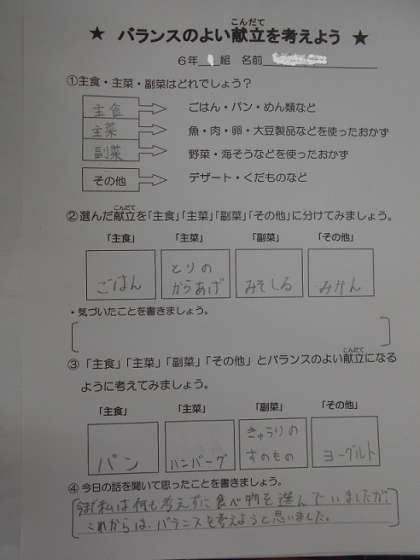 ★ バランスのよい献立を考えよう ★
こんだて
6年 1 組 名前
①主食・主菜・副菜はどれでしょう?
主食 ごはん・パン・めん類など
主菜 魚・肉・卵・大豆製品などを使ったおかず
副菜 野菜・海そうなどを使ったおかず
その他 デザート・くだものなど
こんだて
②選んだ献立を「主食」「主菜」「副菜」「その他」に分けてみましょう。
「主食」 「主菜」 「副菜」 「その他」
ごはん とりのからあげ みそしる みかん
・気づいたことを書きましょう。
こんだて
③「主食」「主菜」「副菜」「その他」とバランスのよい献立になる
ように考えてみましょう。
「主食」 「主菜」 「副菜」 「その他」
パン ハンバーグ きゅうりのすのもの ヨーグルト
④ 今日の話を聞いて思ったことを書きましょう。
私は何も考えずに食べ物を選んでいましたが、
これからは、バランスを考えようと思いました。